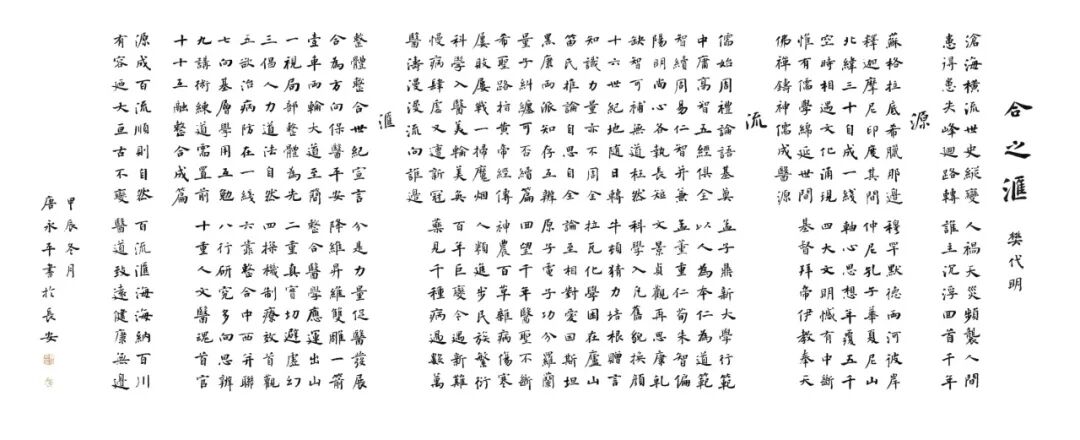 合之滙 樊代明
滄海橫流世史縱變 人禍天災頻襲人間
患得患失峰迴路轉 誰主沉浮回首千年
源
蘇格拉底希臘那邊 穆罕默德兩河彼岸
釋迦摩尼印度其間 仲尼孔子華夏尼山
北緯三十自成一線 軸心思想年覆五千
空時相遇文化涌現 四大文明憾有中斷
惟有儒學綿延世間 基督拜帝伊教奉天
佛禪鑄神儒成醫源
流
儒始周禮論語基奠 孟子鼎新大學行範
中庸高智五經俱全 以人為本仁為道範
智續周易仁智并兼 孟董重仁荀朱智偏
陽明尚心各執長短 文景貞觀再思摩乳
缺智可補無道自殘 科學入凡舊貌換顏
十六世紀地隨日轉 牛頓猜力培根贈言
知識力量亦不周全 拉瓦化學困在廬山
笛氏推論自思自全 論至相對愛因斯坦
黑康兩派知存互辨 原子電子功分羅蘭
量子糾纏可否續篇 回望千年醫聖不斷
希聖路柏黃帝經傳 神農百草雜病傷寒
屢敗屢戰一掃魔烟 人類進步民族繁衍
科學入醫美輪美奐 百年巨變今遇新難
慢病肆虐又遭新冠 藥見千種病過數萬
醫濤漫漫流向誰邊
滙
整體整合世紀宣言 分是力量促醫發展
合為方向保醫平安 降維昇維雙雕一箭
壹車兩輪大道至簡 整合醫學應運出山
一視局部整體為先 二重真實切避虛幻
三倡人力道法自然 四操機制療效首觀
五欲治病防在一線 六靠整合中西并聯
七向基層學用五勉 八行研究多向思辨
九講術練道需置前 十重人文醫魂首官
十十互融整合成篇
源成百流順則自然 百流滙海海納百川
有容迺大亘古不變 醫道致遠健康無邊
甲辰冬月
唐永平書於長安